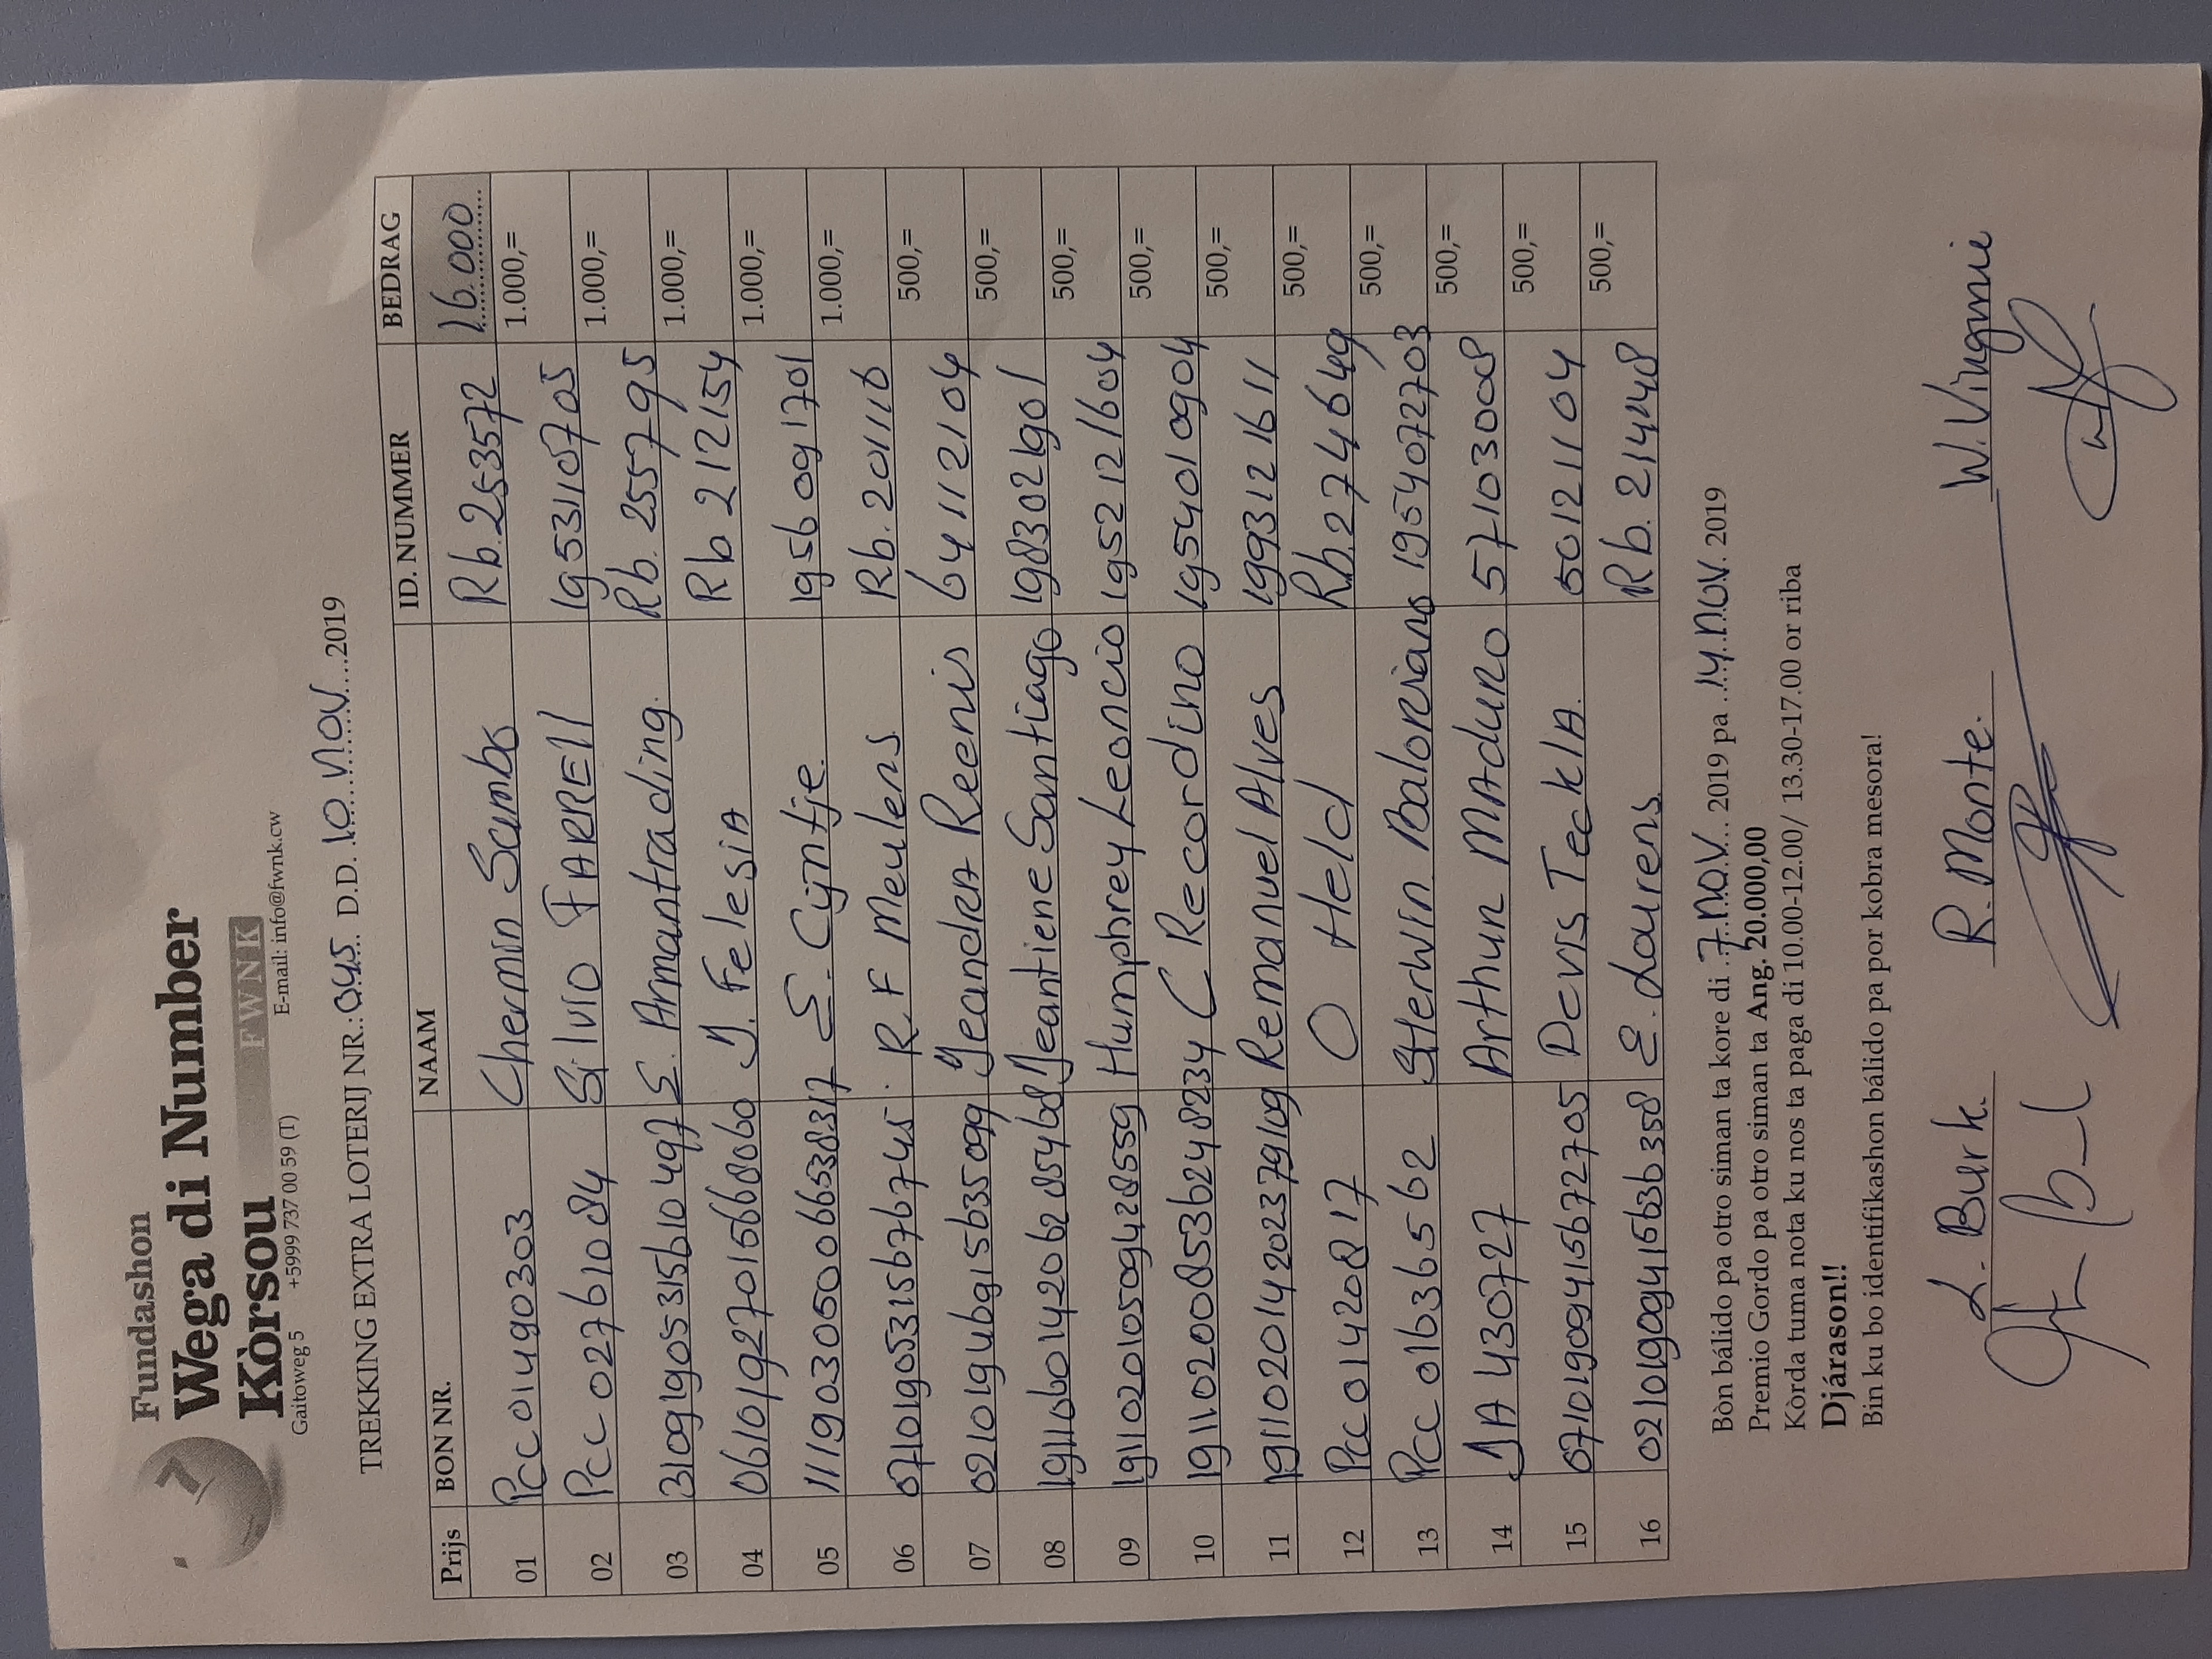 Fundashon
Wega di Number
Kòrsou FWNK
Gaitoweg 5 +5999 737 00 59 (T) E-mail: info@fwnk.cw
TREKKING EXTRA LOTERIJ NR.: 045 D.D. 10 nov 2019
Prijs BON NR. NAAM ID. NUMMER BEDRAG
01 Pcc 01490303 Chermin Sambo Rb. 253572 16.000
02 Pcc 02761084 Silvio FARRELL 1953110705 1.000,=
03 31091905315610497 E. Armantrading. Rb. 255795 1.000,=
04 0610192701566 8060 J. Felesia Rb 212154 1.000,=
05 1119030500 66538317 E. Cijntje. 1956091701 1.000,=
06 07101905315676745. R.F Meulens. Rb. 201116 1.000,=
07 Jeandra Reenis 64112104 500,=
08 Jeantiene Santiago 1983021901 500,=
09 1911020105094 28559 Humphrey Leoncio 1952121604 500,=
10 191102000853624 8234 C Recordino 1954010904 500,=
11 19110201420237 9109 Remanuel Alves 1993121611 500,=
12 Pcc 01420817 O Held Rb. 274649 500,=
13 Pcc 01636562 Sherwin Baloriano 1954072703 500,=
14 JA 430727 Arthur MAduro 57103008 500,=
15 07101909415672705 Devis TeeklA. 50121104 500,=
16 02101909415636358 E. Lourens. Rb. 214448 500,=
Bòn bálido pa otro siman ta kore di 7.nov. 2019 pa 14.nov. 2019
Premio Gordo pa otro siman ta Ang. 20.000,00
Kòrda tuma nota ku nos ta paga di 10.00-12.00/ 13.30-17.00 or riba
Djárason!!
Bin ku bo identifikashon bálido pa por kobra mesora!
L. Burk. R. Monte. W. Virginie